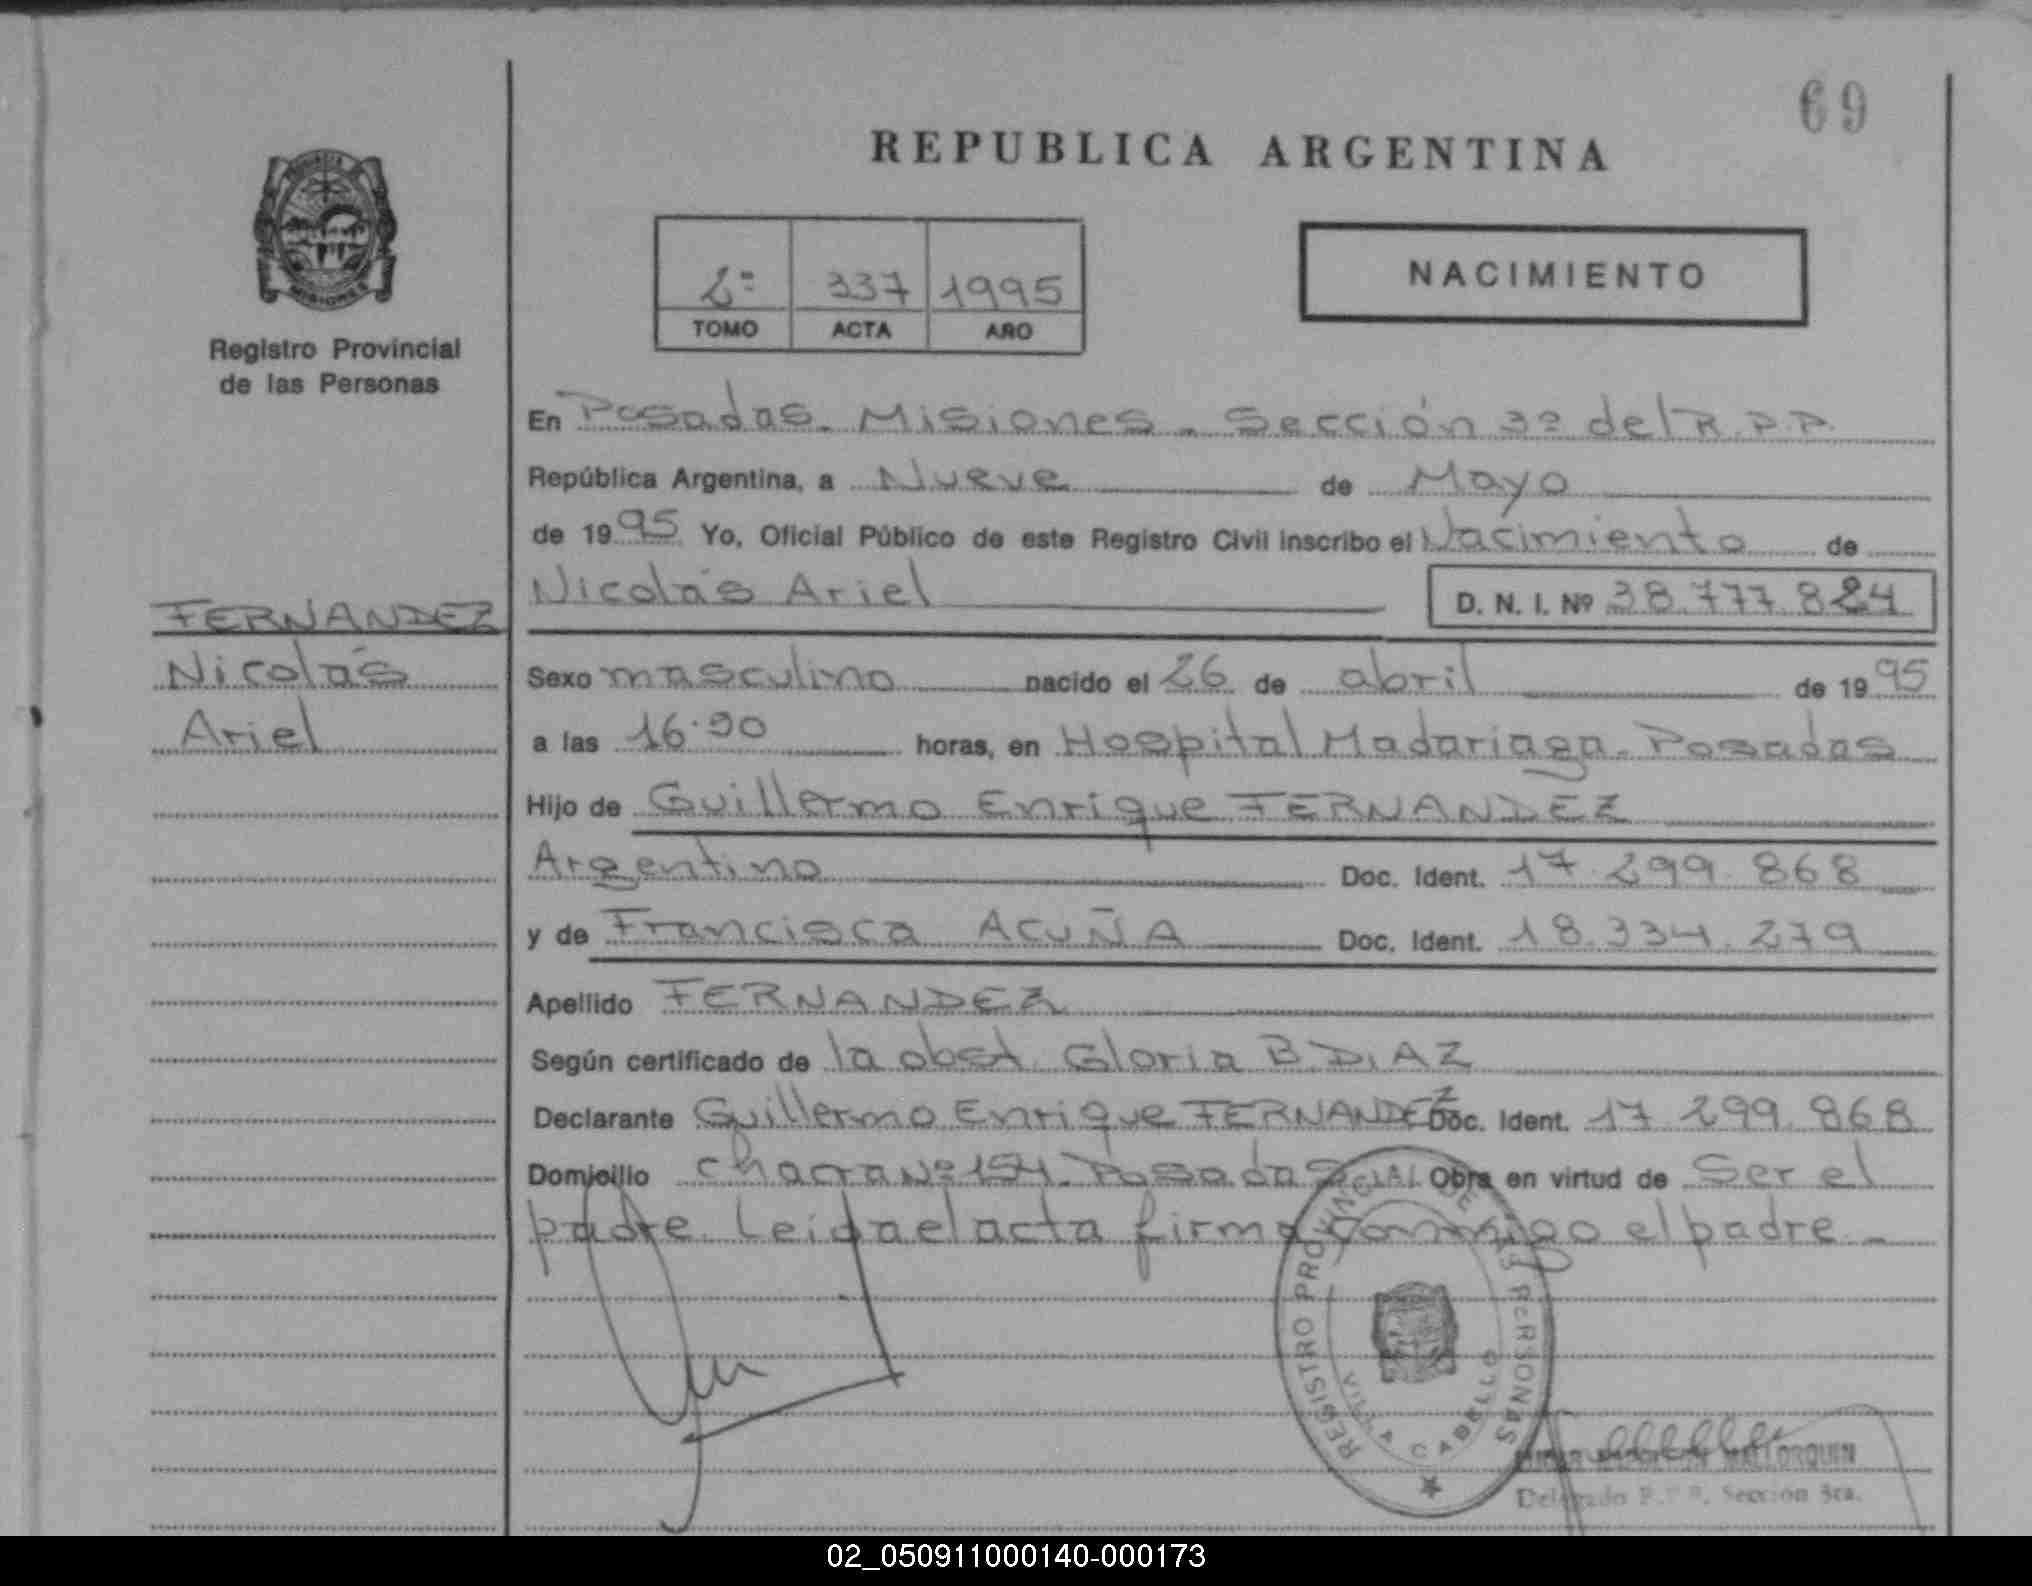 69
REPUBLICA ARGENTINA
PROVINCIA DE
MISIONES
Registro Provincial
de las Personas
2º 337 1995
TOMO ACTA AÑO
NACIMIENTO
En Posadas. Misiones. Sección 3º del R.P.P.
República Argentina, a Nueve de Mayo
de 1995 Yo, Oficial Público de este Registro Civil inscribo el Nacimiento de
Nicolás Ariel D. N. I. Nº 38.777.824
FERNANDEZ
Nicolás
Ariel
Sexo masculino nacido el 26 de abril de 1995
a las 16.30 horas, en Hospital Madariaga. Posadas
Hijo de Guillermo Enrique FERNANDEZ
Argentino Doc. Ident. 17.299.868
y de Francisca ACUÑA Doc. Ident. 18.334.279
Apellido FERNANDEZ
Según certificado de la obst. Gloria B. DIAZ
Declarante Guillermo Enrique FERNANDEZ Doc. Ident. 17.299.868
Domicilio Chacra Nº 154. Posadas Obra en virtud de Ser el
padre. Leida el acta firma conmigo el padre.-
REGISTRO PROVINCIAL DE LAS PERSONAS
VILLA CABELLO
MALLORQUIN
Delegado R.P.P. Sección 3ra.
02_050911000140-000173